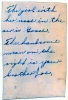 The girl with
her nose in the
air is Bessie.
The handsome
man on the
right is your
brother Joe.